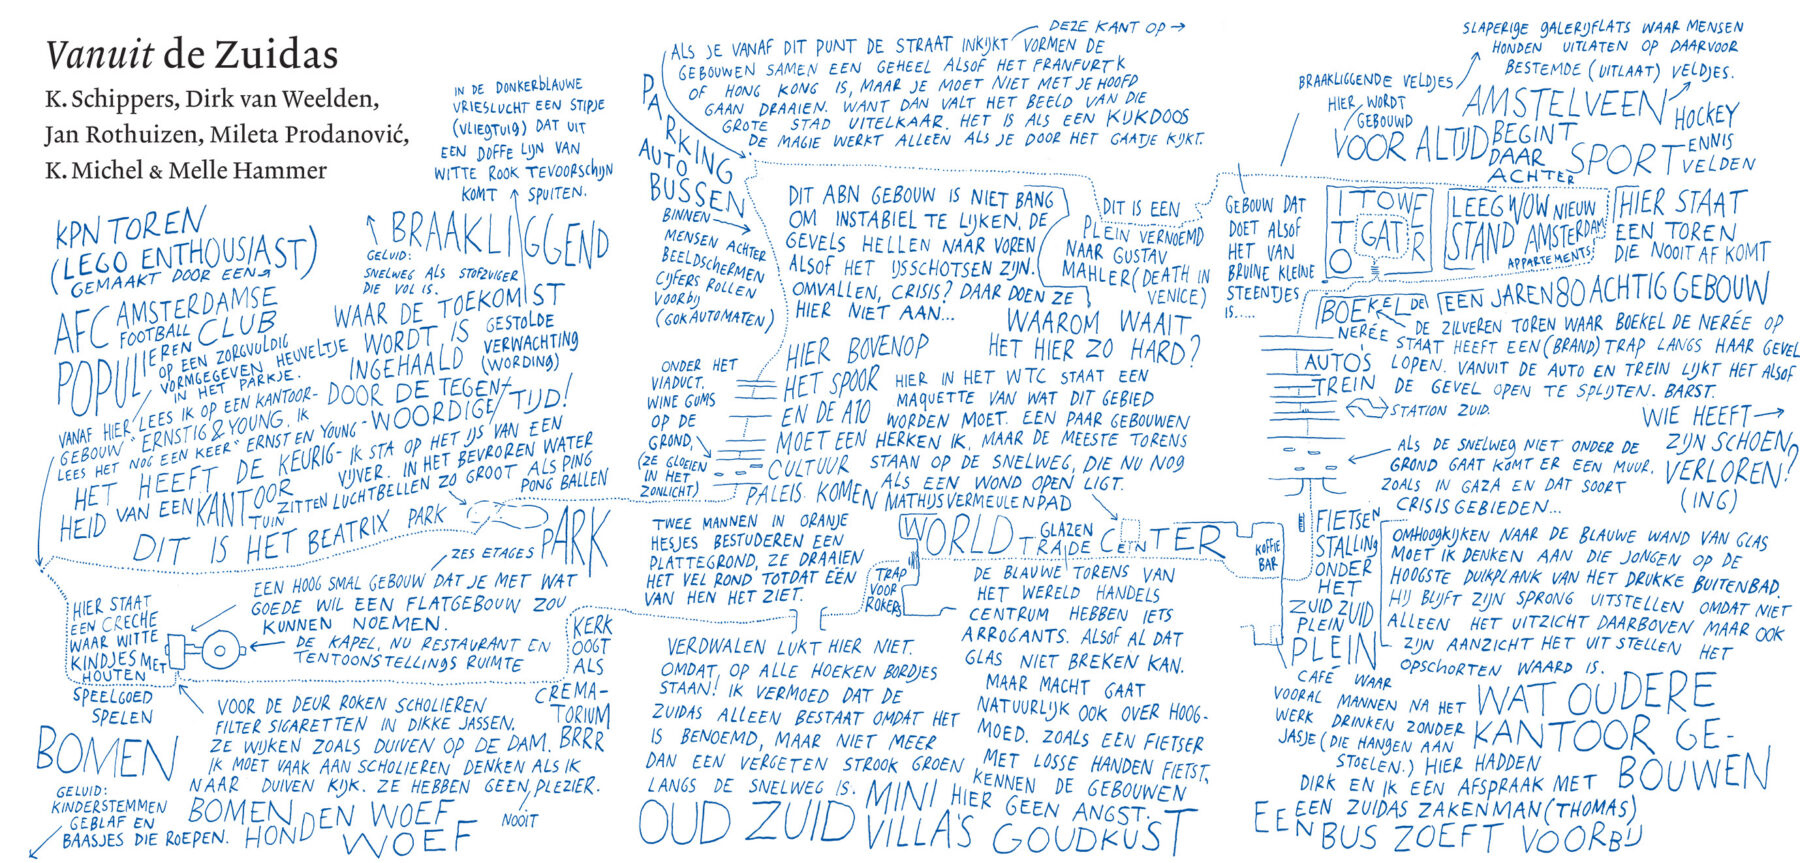 Vanuit de Zuidas
K. Schippers, Dirk van Weelden,
Jan Rothuizen, Mileta Prodanović,
K. Michel & Melle Hammer
IN DE DONKERBLAUWE
VRIESLUCHT EEN STIPJE
(VLIEGTUIG) DAT UIT
EEN DOFFE LIJN VAN
WITTE ROOK TEVOORSCHIJN
KOMT SPUITEN.
KPN TOREN
(LEGO ENTHOUSIAST)
GEMAAKT DOOR EEN
BRAAKLIGGEND
GELUID:
SNELWEG ALS STOFZUIGER
DIE VOL IS.
AFC AMSTERDAMSE
FOOTBALL CLUB
POPULIEREN
OP EEN ZORGVULDIG
VORMGEGEVEN HEUVELTJE
IN HET PARKJE.
WAAR DE TOEKOMST
WORDT IS
INGEHAALD
DOOR DE TEGEN-
WOORDIGE TIJD!
GESTOLDE
VERWACHTING
(WORDING)
VANAF HIER LEES IK OP EEN KANTOOR-
GEBOUW "ERNSTIG & YOUNG. IK
LEES HET NOG EEN KEER" ERNST EN YOUNG-
HET HEEFT DE KEURIG-
HEID VAN EEN KANTOOR
TUIN
IK STA OP HET IJS VAN EEN
VIJVER. IN HET BEVROREN WATER
ZITTEN LUCHTBELLEN ZO GROOT ALS PING
PONG BALLEN
DIT IS HET BEATRIX PARK
PARK
ZES ETAGES
EEN HOOG SMAL GEBOUW DAT JE MET WAT
GOEDE WIL EEN FLATGEBOUW ZOU
KUNNEN NOEMEN.
HIER STAAT
EEN CRECHE
WAAR WITTE
KINDJES MET
HOUTEN
SPEELGOED
SPELEN
DE KAPEL, NU RESTAURANT EN
TENTOONSTELLINGS RUIMTE
KERK
OOGT
ALS
CREMA-
TORIUM
BRRR
VOOR DE DEUR ROKEN SCHOLIEREN
FILTER SIGARETTEN IN DIKKE JASSEN.
ZE WIJKEN ZOALS DUIVEN OP DE DAM.
IK MOET VAAK AAN SCHOLIEREN DENKEN ALS IK
NAAR DUIVEN KIJK. ZE HEBBEN GEEN PLEZIER.
NOOIT
BOMEN
GELUID:
KINDERSTEMMEN
GEBLAF EN
BAASJES DIE ROEPEN.
BOMEN
HONDEN WOEF
WOEF
DEZE KANT OP
ALS JE VANAF DIT PUNT DE STRAAT INKIJKT VORMEN DE
GEBOUWEN SAMEN EEN GEHEEL ALSOF HET FRANFURTK
OF HONG KONG IS, MAAR JE MOET NIET MET JE HOOFD
GAAN DRAAIEN. WANT DAN VALT HET BEELD VAN DIE
GROTE STAD UITELKAAR. HET IS ALS EEN KIJKDOOS
DE MAGIE WERKT ALLEEN ALS JE DOOR HET GAATJE KIJKT.
PARKING
AUTO
BUSSEN
BINNEN
MENSEN ACHTER
BEELDSCHERMEN
CIJFERS ROLLEN
VOORBIJ
(GOKAUTOMATEN)
DIT ABN GEBOUW IS NIET BANG
OM INSTABIEL TE LIJKEN. DE
GEVELS HELLEN NAAR VOREN
ALSOF HET IJSSCHOTSEN ZIJN.
OMVALLEN, CRISIS? DAAR DOEN ZE
HIER NIET AAN...
DIT IS EEN
PLEIN VERNOEMD
NAAR GUSTAV
MAHLER (DEATH IN
VENICE)
WAAROM WAAIT
HET HIER ZO HARD?
ONDER HET
VIADUCT.
WINE GUMS
OP DE
GROND,
(ZE GLOEIEN
IN HET
ZONLICHT)
HIER BOVENOP
HET SPOOR
EN DE A10
MOET EEN
CULTUUR
PALEIS KOMEN
HIER IN HET WTC STAAT EEN
MAQUETTE VAN WAT DIT GEBIED
WORDEN MOET. EEN PAAR GEBOUWEN
HERKEN IK, MAAR DE MEESTE TORENS
STAAN OP DE SNELWEG, DIE NU NOG
ALS EEN WOND OPEN LIGT.
MATHIJSVERMEULENPAD
TWEE MANNEN IN ORANJE
HESJES BESTUDEREN EEN
PLATTEGROND, ZE DRAAIEN
HET VEL ROND TOTDAT ÉÉN
VAN HEN HET ZIET.
TRAP
VOOR
ROKERS
WORLD TRADE CENTER
GLAZEN
KOFFIE
BAR
VERDWALEN LUKT HIER NIET.
OMDAT OP ALLE HOEKEN BORDJES
STAAN! IK VERMOED DAT DE
ZUIDAS ALLEEN BESTAAT OMDAT HET
IS BENOEMD, MAAR NIET MEER
DAN EEN VERGETEN STROOK GROEN
LANGS DE SNELWEG IS.
DE BLAUWE TORENS VAN
HET WERELD HANDELS
CENTRUM HEBBEN IETS
ARROGANTS. ALSOF AL DAT
GLAS NIET BREKEN KAN.
MAAR MACHT GAAT
NATUURLIJK OOK OVER HOOG-
MOED. ZOALS EEN FIETSER
MET LOSSE HANDEN FIETST,
KENNEN DE GEBOUWEN
HIER GEEN ANGST.
OUD ZUID MINI
VILLA'S GOUDKUST
SLAPERIGE GALERIJFLATS WAAR MENSEN
HONDEN UITLATEN OP DAARVOOR
BESTEMDE (UITLAAT) VELDJES.
BRAAKLIGGENDE VELDJES
HIER WORDT
GEBOUWD
VOOR ALTIJD
AMSTELVEEN
BEGINT
DAAR
ACHTER
SPORT
HOCKEY
ENNIS
VELDEN
GEBOUW DAT
DOET ALSOF
HET VAN
BRUINE KLEINE
STEENTJES
IS.....
ITO TOWER
GAT
LEEG
STAND
WOW NIEUW
AMSTERDAM
APPARTEMENTS
HIER STAAT
EEN TOREN
DIE NOOIT AF KOMT
BOEKEL DE
NERÉE
EEN JAREN 80 ACHTIG GEBOUW
DE ZILVEREN TOREN WAAR BOEKEL DE NERÉE OP
STAAT HEEFT EEN (BRAND) TRAP LANGS HAAR GEVEL
LOPEN. VANUIT DE AUTO EN TREIN LIJKT HET ALSOF
DE GEVEL OPEN TE SPLIJTEN. BARST.
AUTO'S
TREIN
STATION ZUID.
WIE HEEFT
ZIJN SCHOEN
VERLOREN?
(ING)
ALS DE SNELWEG NIET ONDER DE
GROND GAAT KOMT ER EEN MUUR.
ZOALS IN GAZA EN DAT SOORT
CRISIS GEBIEDEN...
FIETSEN
STALLING
ONDER
HET
ZUID ZUID
PLEIN
PLEIN
OMHOOGKIJKEN NAAR DE BLAUWE WAND VAN GLAS
MOET IK DENKEN AAN DIE JONGEN OP DE
HOOGSTE DUIKPLANK VAN HET DRUKKE BUITENBAD.
HIJ BLIJFT ZIJN SPRONG UITSTELLEN OMDAT NIET
ALLEEN HET UITZICHT DAARBOVEN MAAR OOK
ZIJN AANZICHT HET UIT STELLEN HET
OPSCHORTEN WAARD IS.
CAFÉ WAAR
VOORAL MANNEN NA HET
WERK DRINKEN ZONDER
JASJE (DIE HANGEN AAN
STOELEN.) HIER HADDEN
DIRK EN IK EEN AFSPRAAK MET
EEN ZUIDAS ZAKENMAN (THOMAS)
WAT OUDERE
KANTOOR GE-
BOUWEN
EEN BUS ZOEFT VOORBIJ